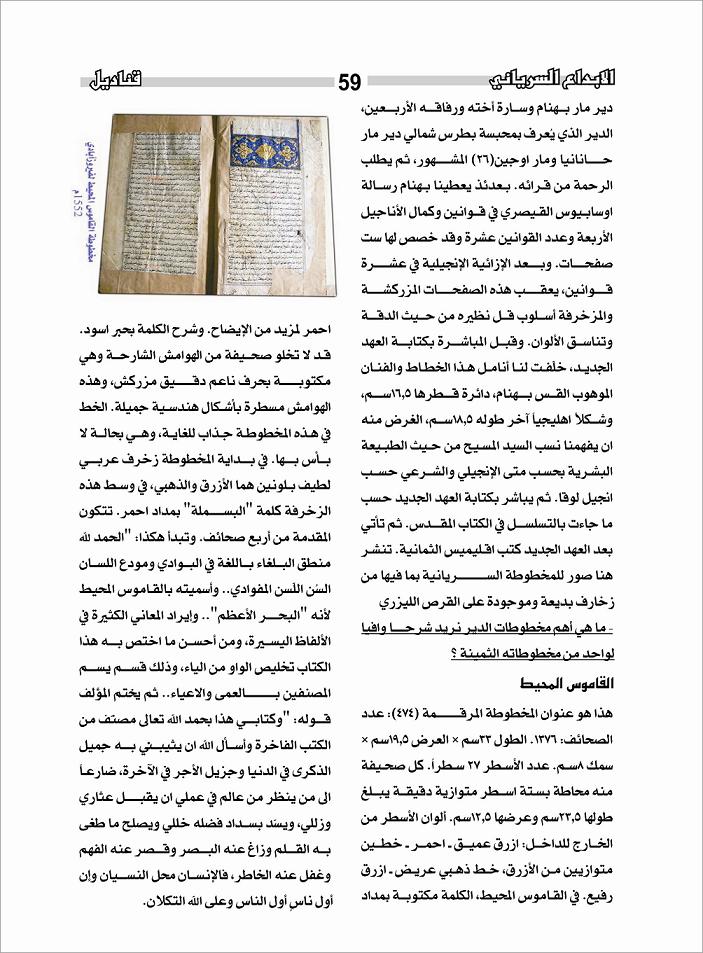 الابداع السرياني
59
قناديل
دير مار بهنام وسارة أخته ورفاقه الأربعين،
الدير الذي يُعرف بمحبسة بطرس شمالي دير مار
حانانيا ومار اوجين(٢٦) المشهور، ثم يطلب
الرحمة من قرائه. بعدئذ يعطينا بهنام رسالة
اوسابيوس القيصري في قوانين وكمال الأناجيل
الأربعة وعدد القوانين عشرة وقد خصص لها ست
صفحات. وبعد الإزائية الإنجيلية في عشرة
قوانين، يعقب هذه الصفحات المزركشة
والمزخرفة أسلوب قل نظيره من حيث الدقة
وتناسق الألوان. وقبل المباشرة بكتابة العهد
الجديد، خلّفت لنا أنامل هذا الخطاط والفنان
الموهوب القس بهنام، دائرة قطرها ١٦,٥سم،
وشكلاً اهليجياً آخر طوله ١٨,٥سم، الغرض منه
ان يفهمنا نسب السيد المسيح من حيث الطبيعة
البشرية بحسب متى الإنجيلي والشرعي حسب
انجيل لوقا. ثم يباشر بكتابة العهد الجديد حسب
ما جاءت بالتسلسل في الكتاب المقدس. ثم تأتي
بعد العهد الجديد كتب اقليميس الثمانية. تنشر
هنا صور للمخطوطة السريانية بما فيها من
زخارف بديعة وموجودة على القرص الليزري
- ما هي أهم مخطوطات الدير نريد شرحا وافيا
لواحد من مخطوطاته الثمينة ؟
القاموس المحيط
هذا هو عنوان المخطوطة المرقمة (٤٧٤): عدد
الصحائف: ١٣٧٦. الطول ٣٣سم × العرض ١٩,٥سم ×
سمك ٨سم. عدد الأسطر ٢٧ سطراً. كل صحيفة
منه محاطة بستة اسطر متوازية دقيقة يبلغ
طولها ٢٣,٥سم وعرضها ١٢,٥سم. ألوان الأسطر من
الخارج للداخل: ازرق عميق ـ احمر ـ خطين
متوازيين من الأزرق، خط ذهبي عريض ـ ازرق
رفيع. في القاموس المحيط، الكلمة مكتوبة بمداد
مخطوطة القاموس المحيط لفيروزآبادي
1552م
احمر لمزيد من الإيضاح. وشرح الكلمة بحبر اسود.
قد لا تخلو صحيفة من الهوامش الشارحة وهي
مكتوبة بحرف ناعم دقيق مزركش، وهذه
الهوامش مسطرة بأشكال هندسية جميلة. الخط
في هذه المخطوطة جذاب للغاية، وهي بحالة لا
بأس بها. في بداية المخطوطة زخرف عربي
لطيف بلونين هما الأزرق والذهبي، في وسط هذه
الزخرفة كلمة "البسملة" بمداد احمر. تتكون
المقدمة من أربع صحائف. وتبدأ هكذا: "الحمد لله
منطق البلغاء باللغة في البوادي ومودع اللسان
السُن اللَسن المفوادي.. وأسميته بالقاموس المحيط
لأنه "البحر الأعظم".. وإيراد المعاني الكثيرة في
الألفاظ اليسيرة، ومن أحسن ما اختص به هذا
الكتاب تخليص الواو من الياء، وذلك قسم يسم
المصنفين بالعمى والاعياء.. ثم يختم المؤلف
قوله: "وكتابي هذا بحمد الله تعالى مصنف من
الكتب الفاخرة وأسأل الله ان يثيبني به جميل
الذكرى في الدنيا وجزيل الأجر في الآخرة، ضارعاً
الى من ينظر من عالم في عملي ان يقبل عثاري
وزللي، ويسد بسداد فضله خللي ويصلح ما طغى
به القلم وزاغ عنه البصر وقصر عنه الفهم
وغفل عنه الخاطر، فالإنسان محل النسيان وإن
أول ناسٍ أول الناس وعلى الله التكلان.